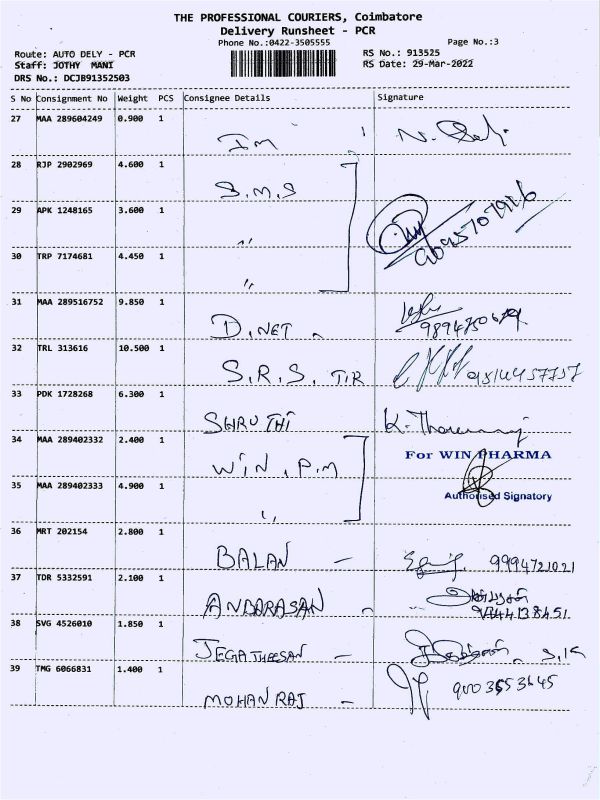 THE PROFESSIONAL COURIERS, Coimbatore
Delivery Runsheet - PCR
Phone No.:0422-3505555
Page No.:3
Route: AUTO DELY - PCR
RS No.: 913525
Staff: JOTHY MANI
RS Date: 29-Mar-2022
DRS No.: DCJB91352503
S No Consignment No Weight PCS Consignee Details Signature
27 MAA 289604249 0.900 1
Im
28 RJP 2902969 4.600 1
S.M.S
29 APK 1248165 3.600 1
"
9095707916
30 TRP 7174681 4.450 1
"
31 MAA 289516752 9.850 1
D.NET
32 TRL 313616 10.500 1
S.R.S. TIR
9514457757
33 PDK 1728268 6.300 1
SHRUTHI
34 MAA 289402332 2.400 1
WIN . P.M
For WIN PHARMA
35 MAA 289402333 4.900 1
"
Authorised Signatory
36 MRT 202154 2.800 1
BALAN - 9994721021
37 TDR 5332591 2.100 1
ANBARASAN
38 SVG 4526010 1.850 1
JEGATHEESAN -
39 TMG 6066831 1.400 1
MOHAN RAJ - 9003553645